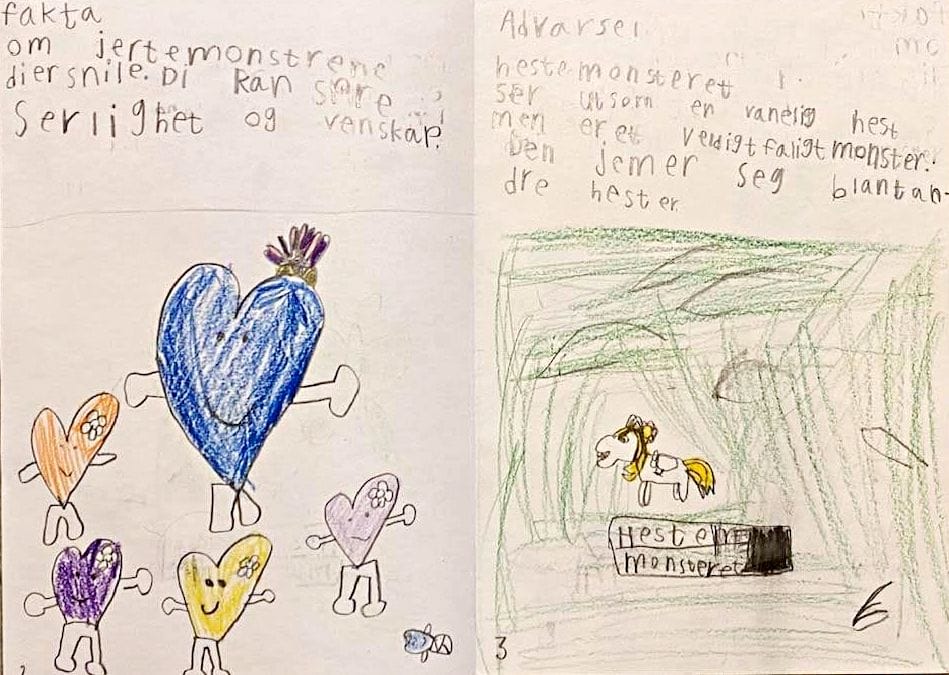 fakta
om jertemonstrene
diersnile. Di kan spre
Serlighet og venskap.
Advarsel
hestemonsterett
ser utsom en vanelig hest
men er et veldigt faligt monster.
Den jemer seg blantan-
dre hester
Heste
monsteret
3